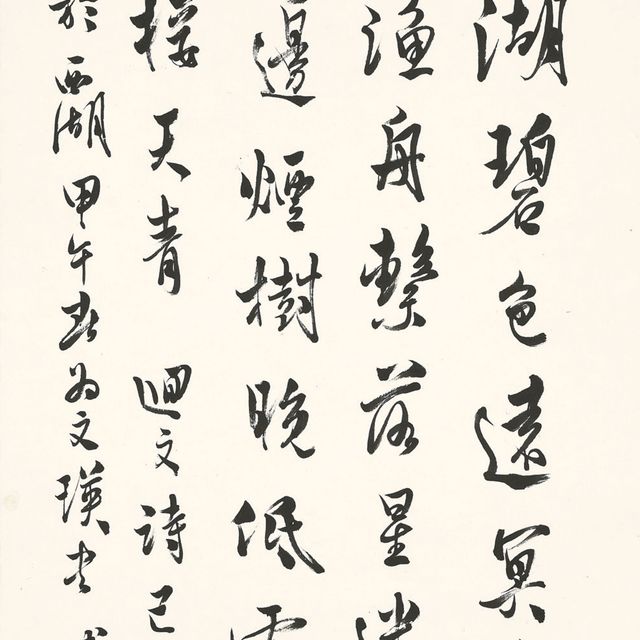 湖碧色遠冥
漁舟繫落星
邊煙樹晚低
天青 迴文詩己
於西湖甲午春为文瑛书